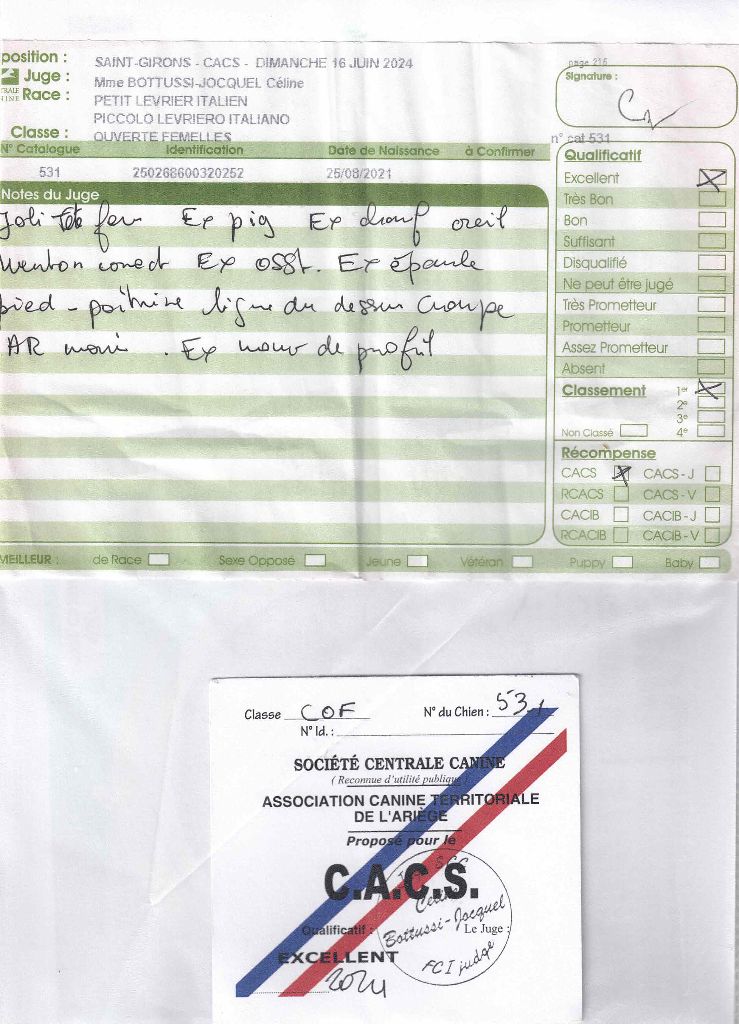 position :
SAINT-GIRONS - CACS - DIMANCHE 16 JUIN 2024
page 215
Juge :
Mme BOTTUSSI-JOCQUEL Céline
Signature :
Race :
PETIT LEVRIER ITALIEN
PICCOLO LEVRIERO ITALIANO
Classe :
OUVERTE FEMELLES
n° cat 531
N° Catalogue Identification Date de Naissance à Confirmer
531 250268600320252 25/08/2021
Notes du Juge
Joli fem Ex pig Ex oreil
menton correct Ex osst. Ex épaule
pied - poitrine ligne du dessus croupe
AR . Ex mouv de profil
Qualificatif
Excellent
Très Bon
Bon
Suffisant
Disqualifié
Ne peut être jugé
Très Prometteur
Prometteur
Assez Prometteur
Absent
Classement 1er
2e
3e
Non Classé 4e
Récompense
CACS CACS - J
RCACS CACS - V
CACIB CACIB - J
RCACIB CACIB - V
MEILLEUR : de Race Sexe Opposé Jeune Vétéran Puppy Baby
Classe COF N° du Chien : 531
N° Id. :
SOCIÉTÉ CENTRALE CANINE
( Reconnue d'utilité publique )
ASSOCIATION CANINE TERRITORIALE
DE L'ARIÈGE
Proposé pour le
C.A.C.S.
Céline
Bottussi-Jocquel
FCI judge
Qualificatif : Le Juge :
EXCELLENT
2024